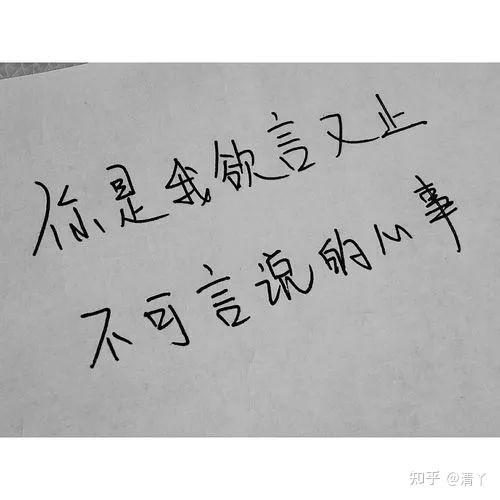 你是我欲言又止
不可言说的心事
知乎 @清丫